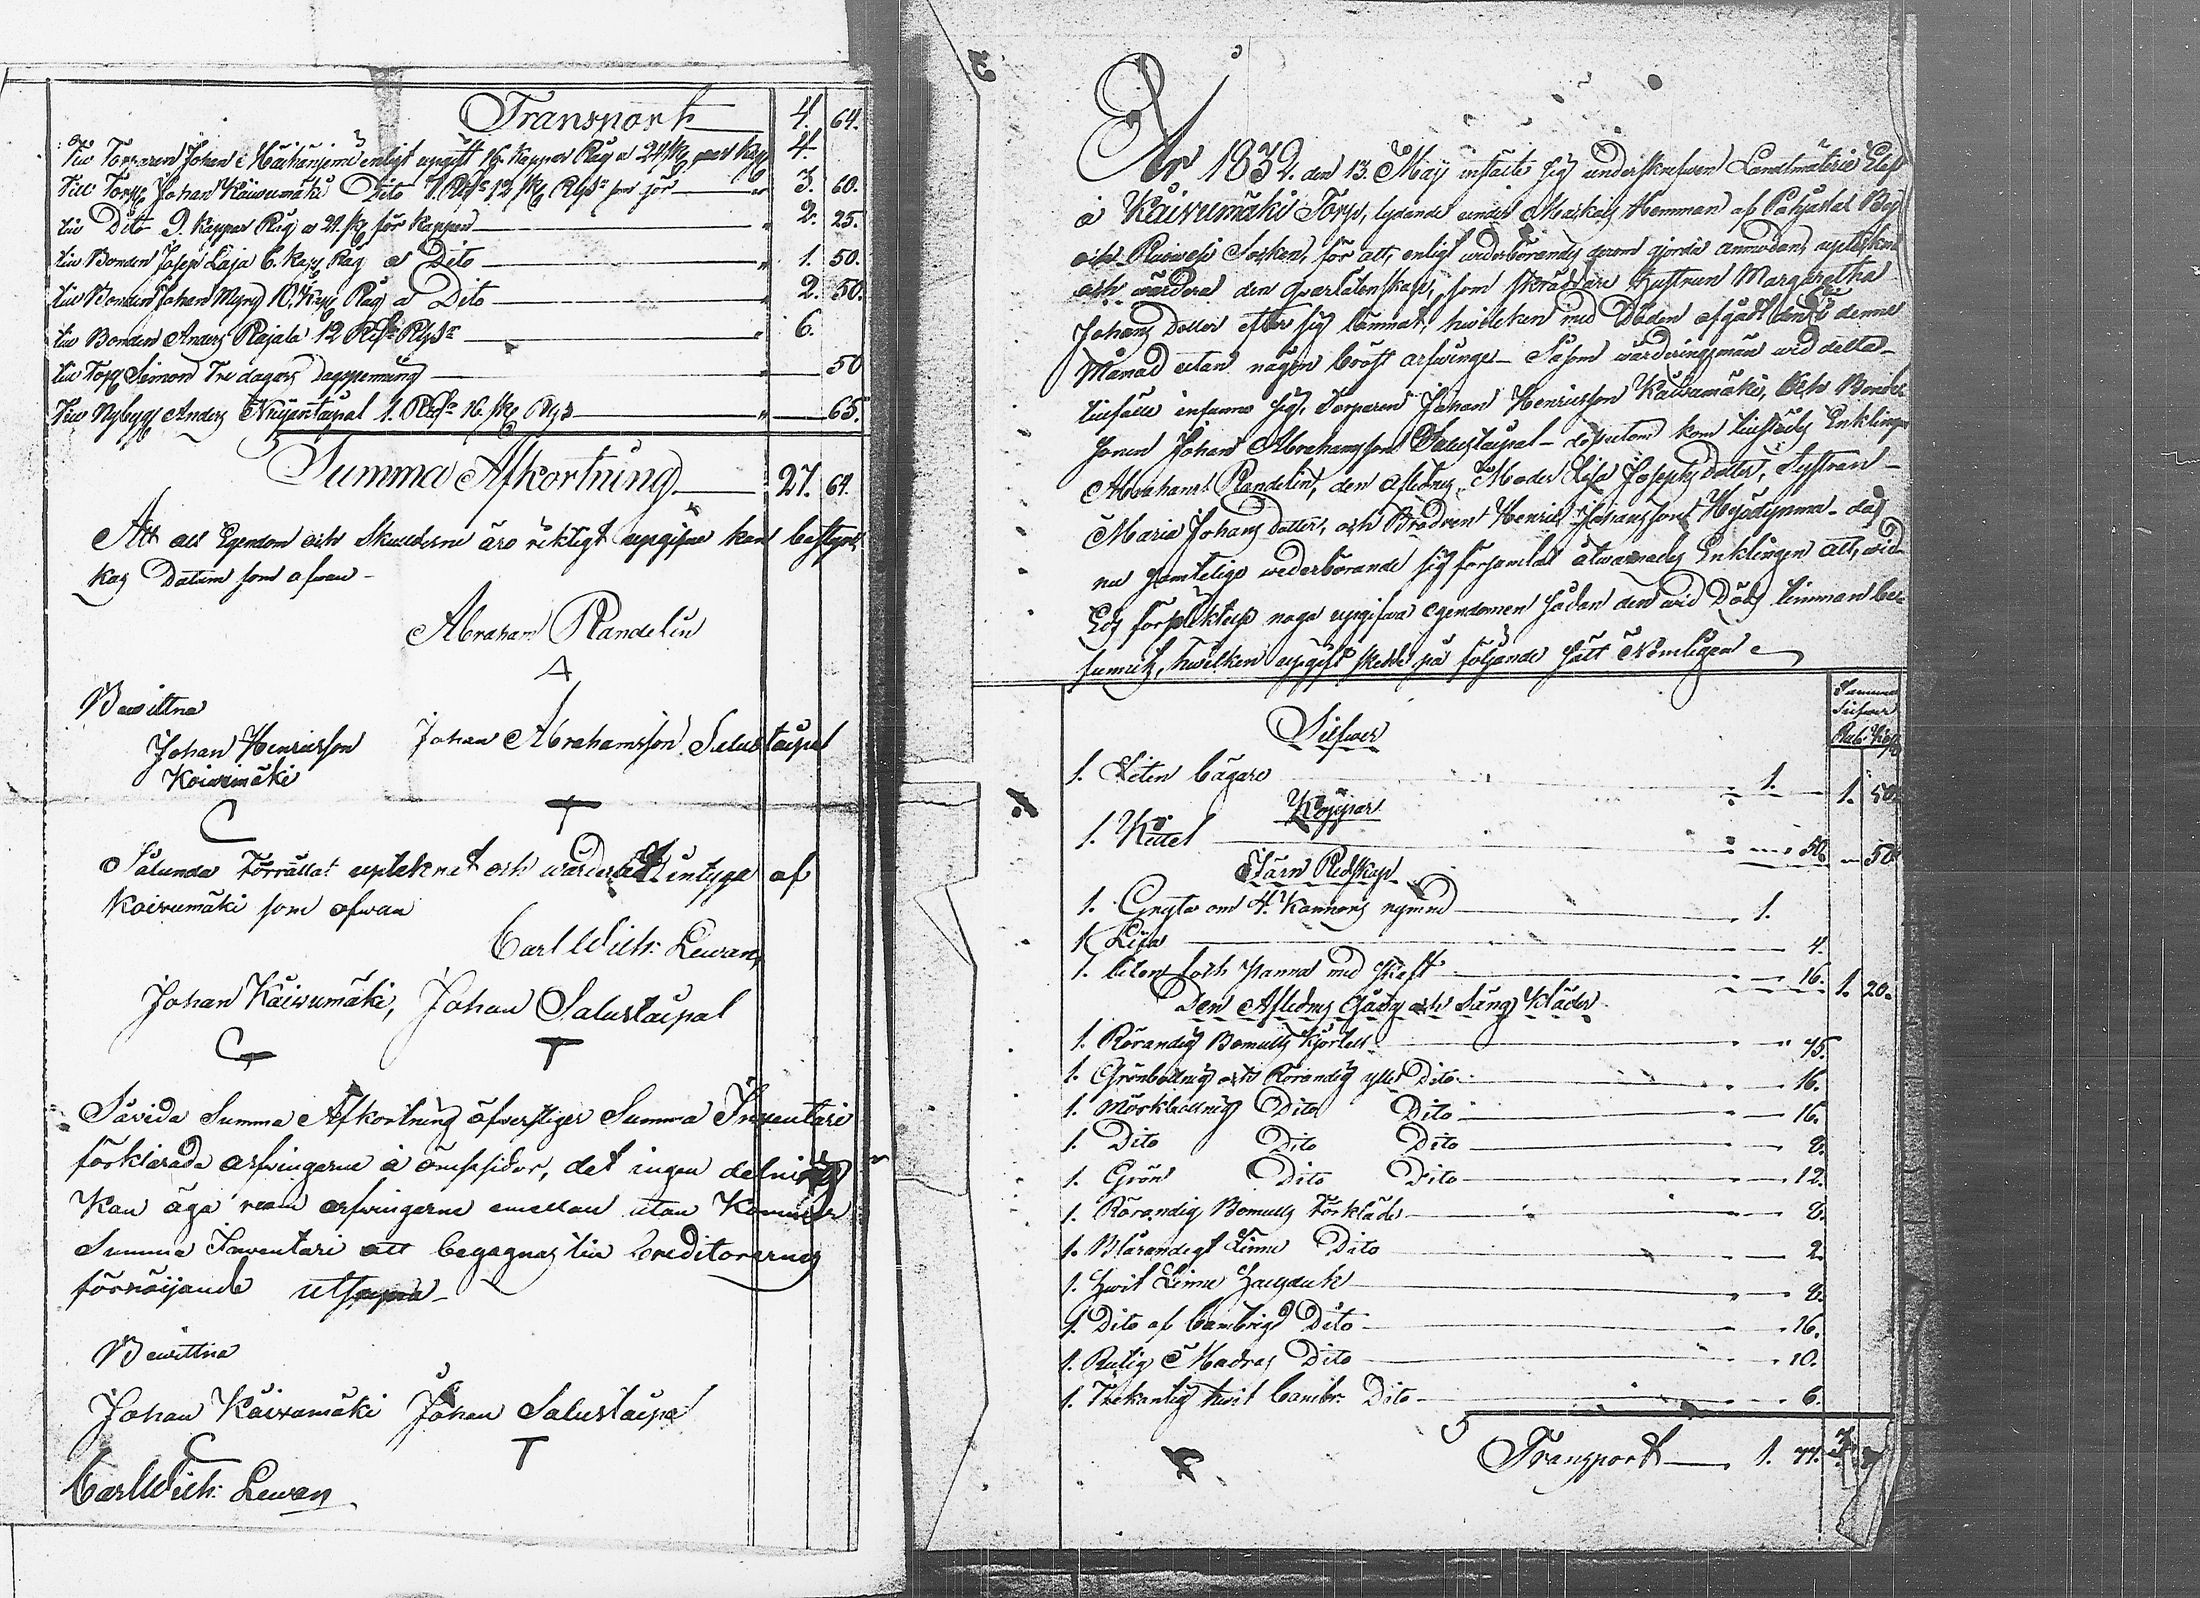 Transport 4. 64.
Till Torparen Johan i enligt uppgift 16. Kappar Råg a 24 4.
Till Torp. Johan Käiwumäki Dito 7. 12 som gör 3. 60.
till Dito 9. Kappar Råg a 24 för kappen 2. 25.
till Bonden Josep Laja 6. Kapp Råg a Dito 1. 50.
till Bonden Johan 10. Råg a Dito 2. 50.
till Bonden Anders Rajala 12 6.
till Torp. Simon Tre dagars dagspenning 50
Till Nybygg Anders 1. 16. 65.
Summa Afkortning 27. 64.
Att all Egendom och skulderne äro riktigt upgifne kan bestyr-
kas Datum som ofwan -
Abraham Randelin
Bewittna
Johan Henricsson Johan Abrahamsson Salustaipal
Koiwumäki
Sålunda Förrättat upteknat och wärderat intyga af
Koiwumäki som ofwan
Carl Wilh: Lewan,
Johan Käiwumäki, Johan Salustaipal
T
Såvida Summa Afkortning öfwerstiger Summa Inventari
förklarade arfwingarne å ömse sidor, det ingen delning
Kan äga rum arfwingarne emellan utan Kommer
Summa Inventari att begagnas till Creditorernes
förnöijande utsupra -
Bewittna
Johan Käiwumäki Johan Salustaipal
T
Carl Wilh: Lewan
År 1832. den 13. May infälte sig underskrefwen Landtmäterie Elef
å Käiwumäki Torp, lydande under Hemman af Pohjaslax By
och Ruiwesi Socken, för att, enligt wederbörandes derom gjorde anmodan, uptekna
och wärdera den qwarlåtenskap, som skräddare Hustrun Margaretha
Johans Dotter efter sig lämnat, hwilcken med Döden afgått den i denne
Månad utan någon bröst arfwinge - Såsom wärderingsmän wid detta
tillfälle infunno sig, Torparen Johan Henricsson Käiwumäki, och Bonde
Sonen Johan Abrahamsson Salustaipal - dessutom kom tillstädes Enklingen
Abraham Randelin, den aflednes Moder Lisa Josephs dotter, Systran
Maria Johans dotter, och Brodren Henric Johansson Hyödynma - då
nu samtelige wederbörande sig församlat åtwarnades Enklingen att, wid
Eds förpliktelse noga upgifwa egendomen sådan den wid Döds timman be-
funnits, hwilken upgift skedde på följande sätt Nemligen
Summa
Silfwer
Rub. Kop
Silfwer
1. Liten bägare 1. 1. 50.
Koppar
1. Kittel 50. 50.
Järn Redskap
1. Gryta om 4. Kannors rymd 1.
1. Lita 4.
1. liten och panna med skaft 16. 1. 20.
Den Aflednes Gång och Säng Kläder
1. Rorandig Bomulls Kjortel 75.
1. Grönbottnig och Rorandig ylle Dito 16.
1. Mörkbottnig Dito Dito 16.
1. Dito Dito Dito 8.
1. Grön Dito Dito 12.
1. Rorandig Bomulls Förkläde 8.
1. Blårandigt Linne Dito 2.
1. Hwit Linne Halsduk 8.
1. Dito af Cambrig Dito 16.
1. Rutig Madras Dito 10.
1. Trekantig hwit Cambr. Dito 6.
Transport 1. 77. 3.